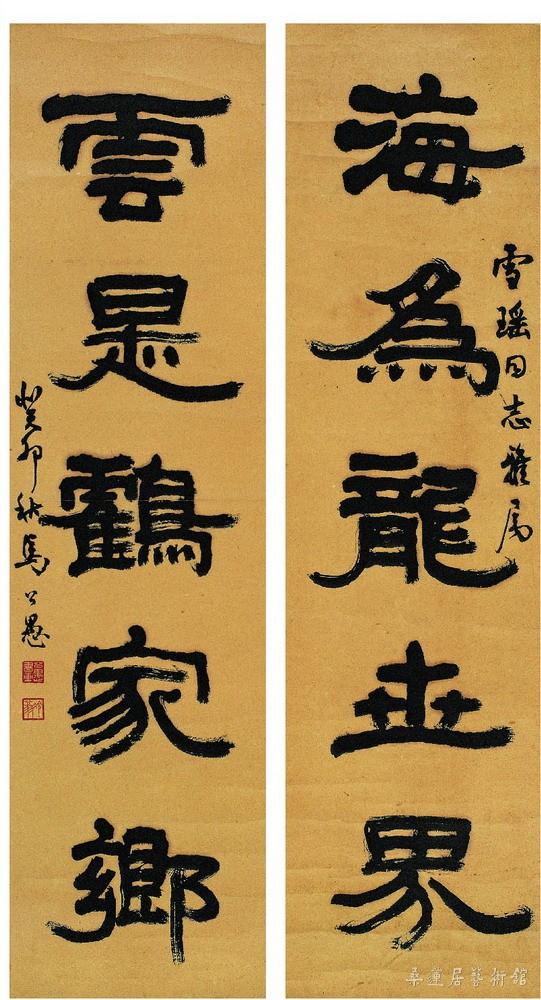 海為龍世界
雪瑤同志雅屬
雲是鶴家鄉
癸卯秋馬公愚
桑蓮居藝術館